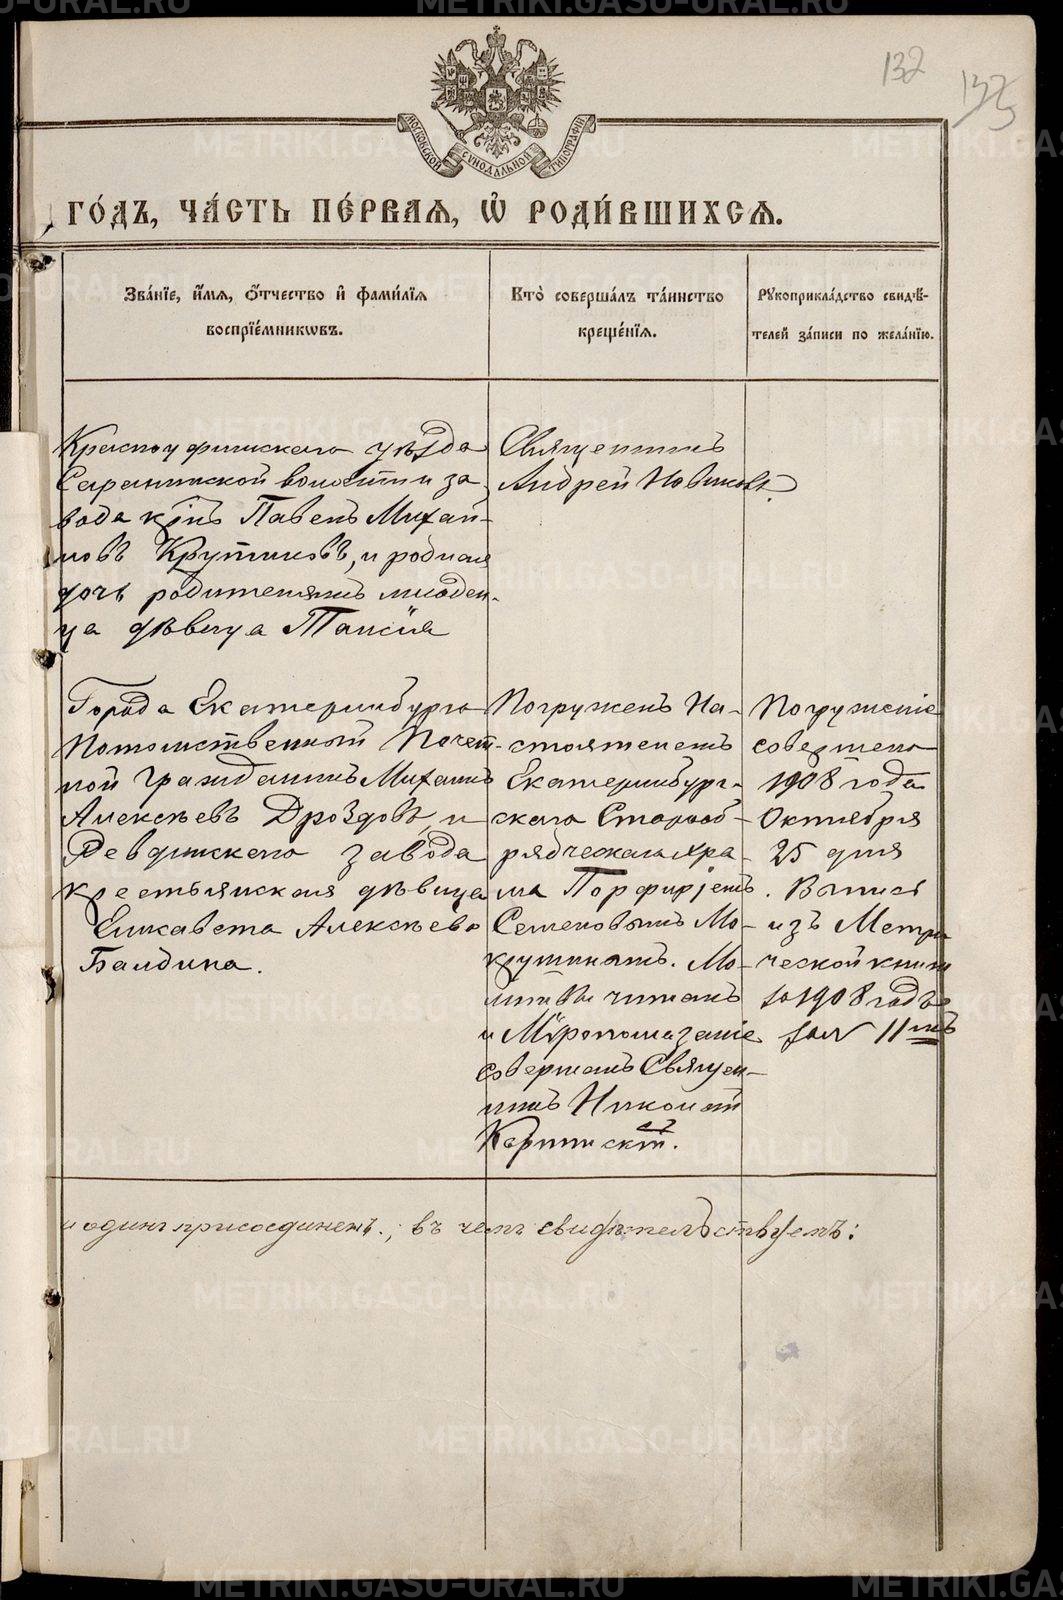 132
МОСКОВСКОЙ СѴНОДАЛЬНОЙ ТИПОГРАФІИ
ГО́ДЪ, ЧА́СТЬ ПЕ́РВАЯ, Ѽ РОДИ́ВШИХСЯ.
Зва́нїе, и҆́мя, ѻ҆́тчество и҆ фами́лїя
воспрїе́мникѡвъ.
Кто̀ соверша́лъ та́инство
креще́нїя.
Рꙋкоприкла́дство свидѣ́-
телей за́писи по жела́нїю.
Красноуфимскаго уѣзда
Саранинской волости и за-
вода крнъ Павелъ Михай-
ловъ Крутиковъ, и родная
дочь родителямъ младен-
ца дѣвица Таисія
Священникъ
Андрей Новиковъ
Города Екатеринбурга
Потомственный Почет-
ной Гражданинъ Михаилъ
Алексѣевъ Дроздовъ, и
Ревдинскаго завода
крестьянская дѣвица
Елисавета Алексѣева
Балдина.
Погруженъ На-
стоятелемъ
Екатеринбург-
скаго Старооб-
рядческаго хра-
ма Порфиріемъ
Семеновымъ Мо-
крушинымъ. Мо-
литвы читалъ
и Мѵропомазаніе
совершалъ Священ-
никъ Николай
Карпинскій.
Погруженіе
совершено
1908 года
Октября
25 дня
. Выпись
изъ Метри-
ческой книги
за 1908 годъ
за № 11мъ
и одинъ присоединенъ., въ чемъ свидѣтельствуемъ:
METRIKI.GASO-URAL.RU